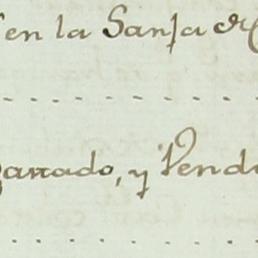 en la Santa
arrado, y Vend